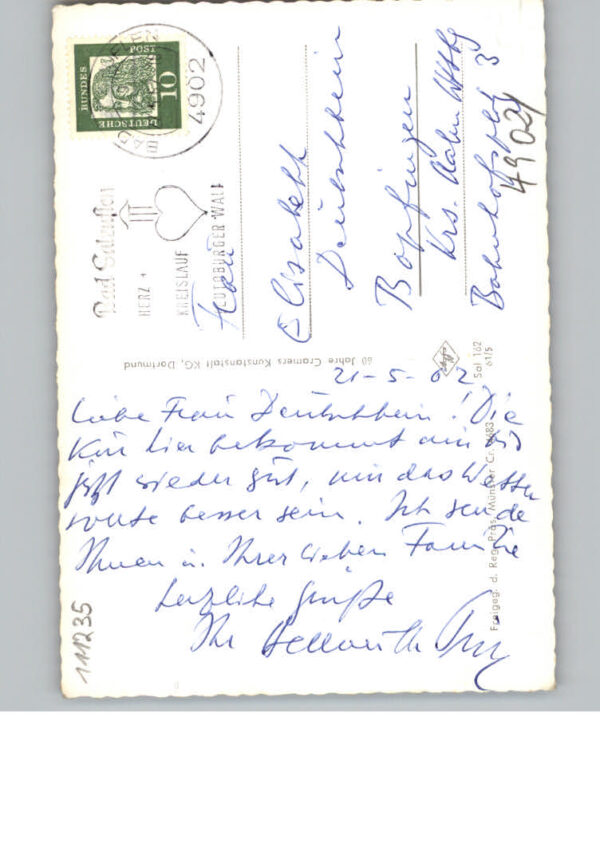 DEUTSCHE
BUNDES
POST
10
4902
Bad Salzuflen
HERZ +
KREISLAUF
TEUTOBURGER WALD
Frau
Elisabeth
Deutschbein
Bopfingen
Krs. Aalen Wttbg
Bahnhofsplatz 3
49021
60 Jahre Cramers Kunstanstalt KG, Dortmund
Sal 162
61/5
Freigeg. d. Reg. Präs. Münster Cr.
21-5-62
Liebe Frau Deutschbein! Die
Kur hier bekommt mir bis
jetzt wieder gut, nur das Wetter
sollte besser sein. Ich sende
Ihnen u. Ihrer lieben Familie
herzliche Grüße
Ihr Hellmuth
111235